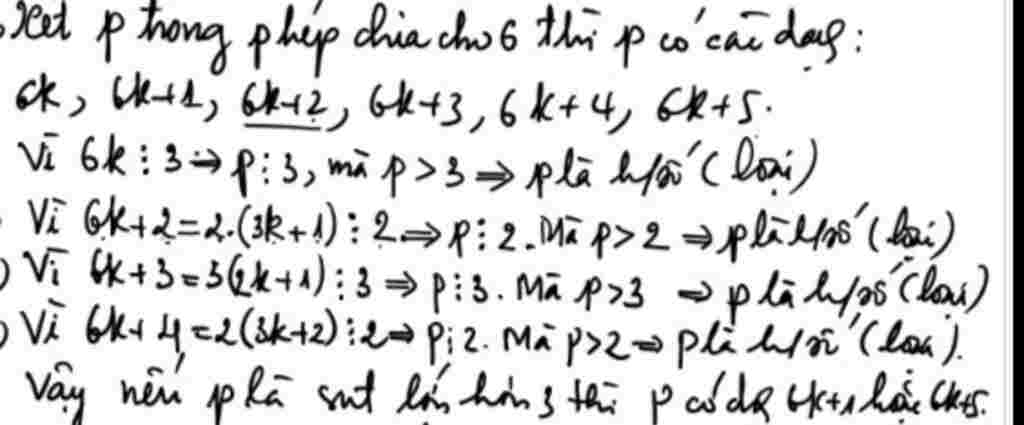 Xét p trong phép chia cho 6 thì p có các dạng:
6k, 6k+1, 6k+2, 6k+3, 6k+4, 6k+5.
Vì 6k ⋮ 3 ⇒ p ⋮ 3, mà p > 3 ⇒ p là h/số (loại)
Vì 6k+2 = 2.(3k+1) ⋮ 2 ⇒ p ⋮ 2. Mà p > 2 ⇒ p là h/số (loại)
) Vì 6k+3 = 3(2k+1) ⋮ 3 ⇒ p ⋮ 3. Mà p > 3 ⇒ p là h/số (loại)
) Vì 6k+4 = 2(3k+2) ⋮ 2 ⇒ p ⋮ 2. Mà p > 2 ⇒ p là h/số (loại).
Vậy nếu p là snt lớn hơn 3 thì p có dạ 6k+1 hoặc 6k+5.